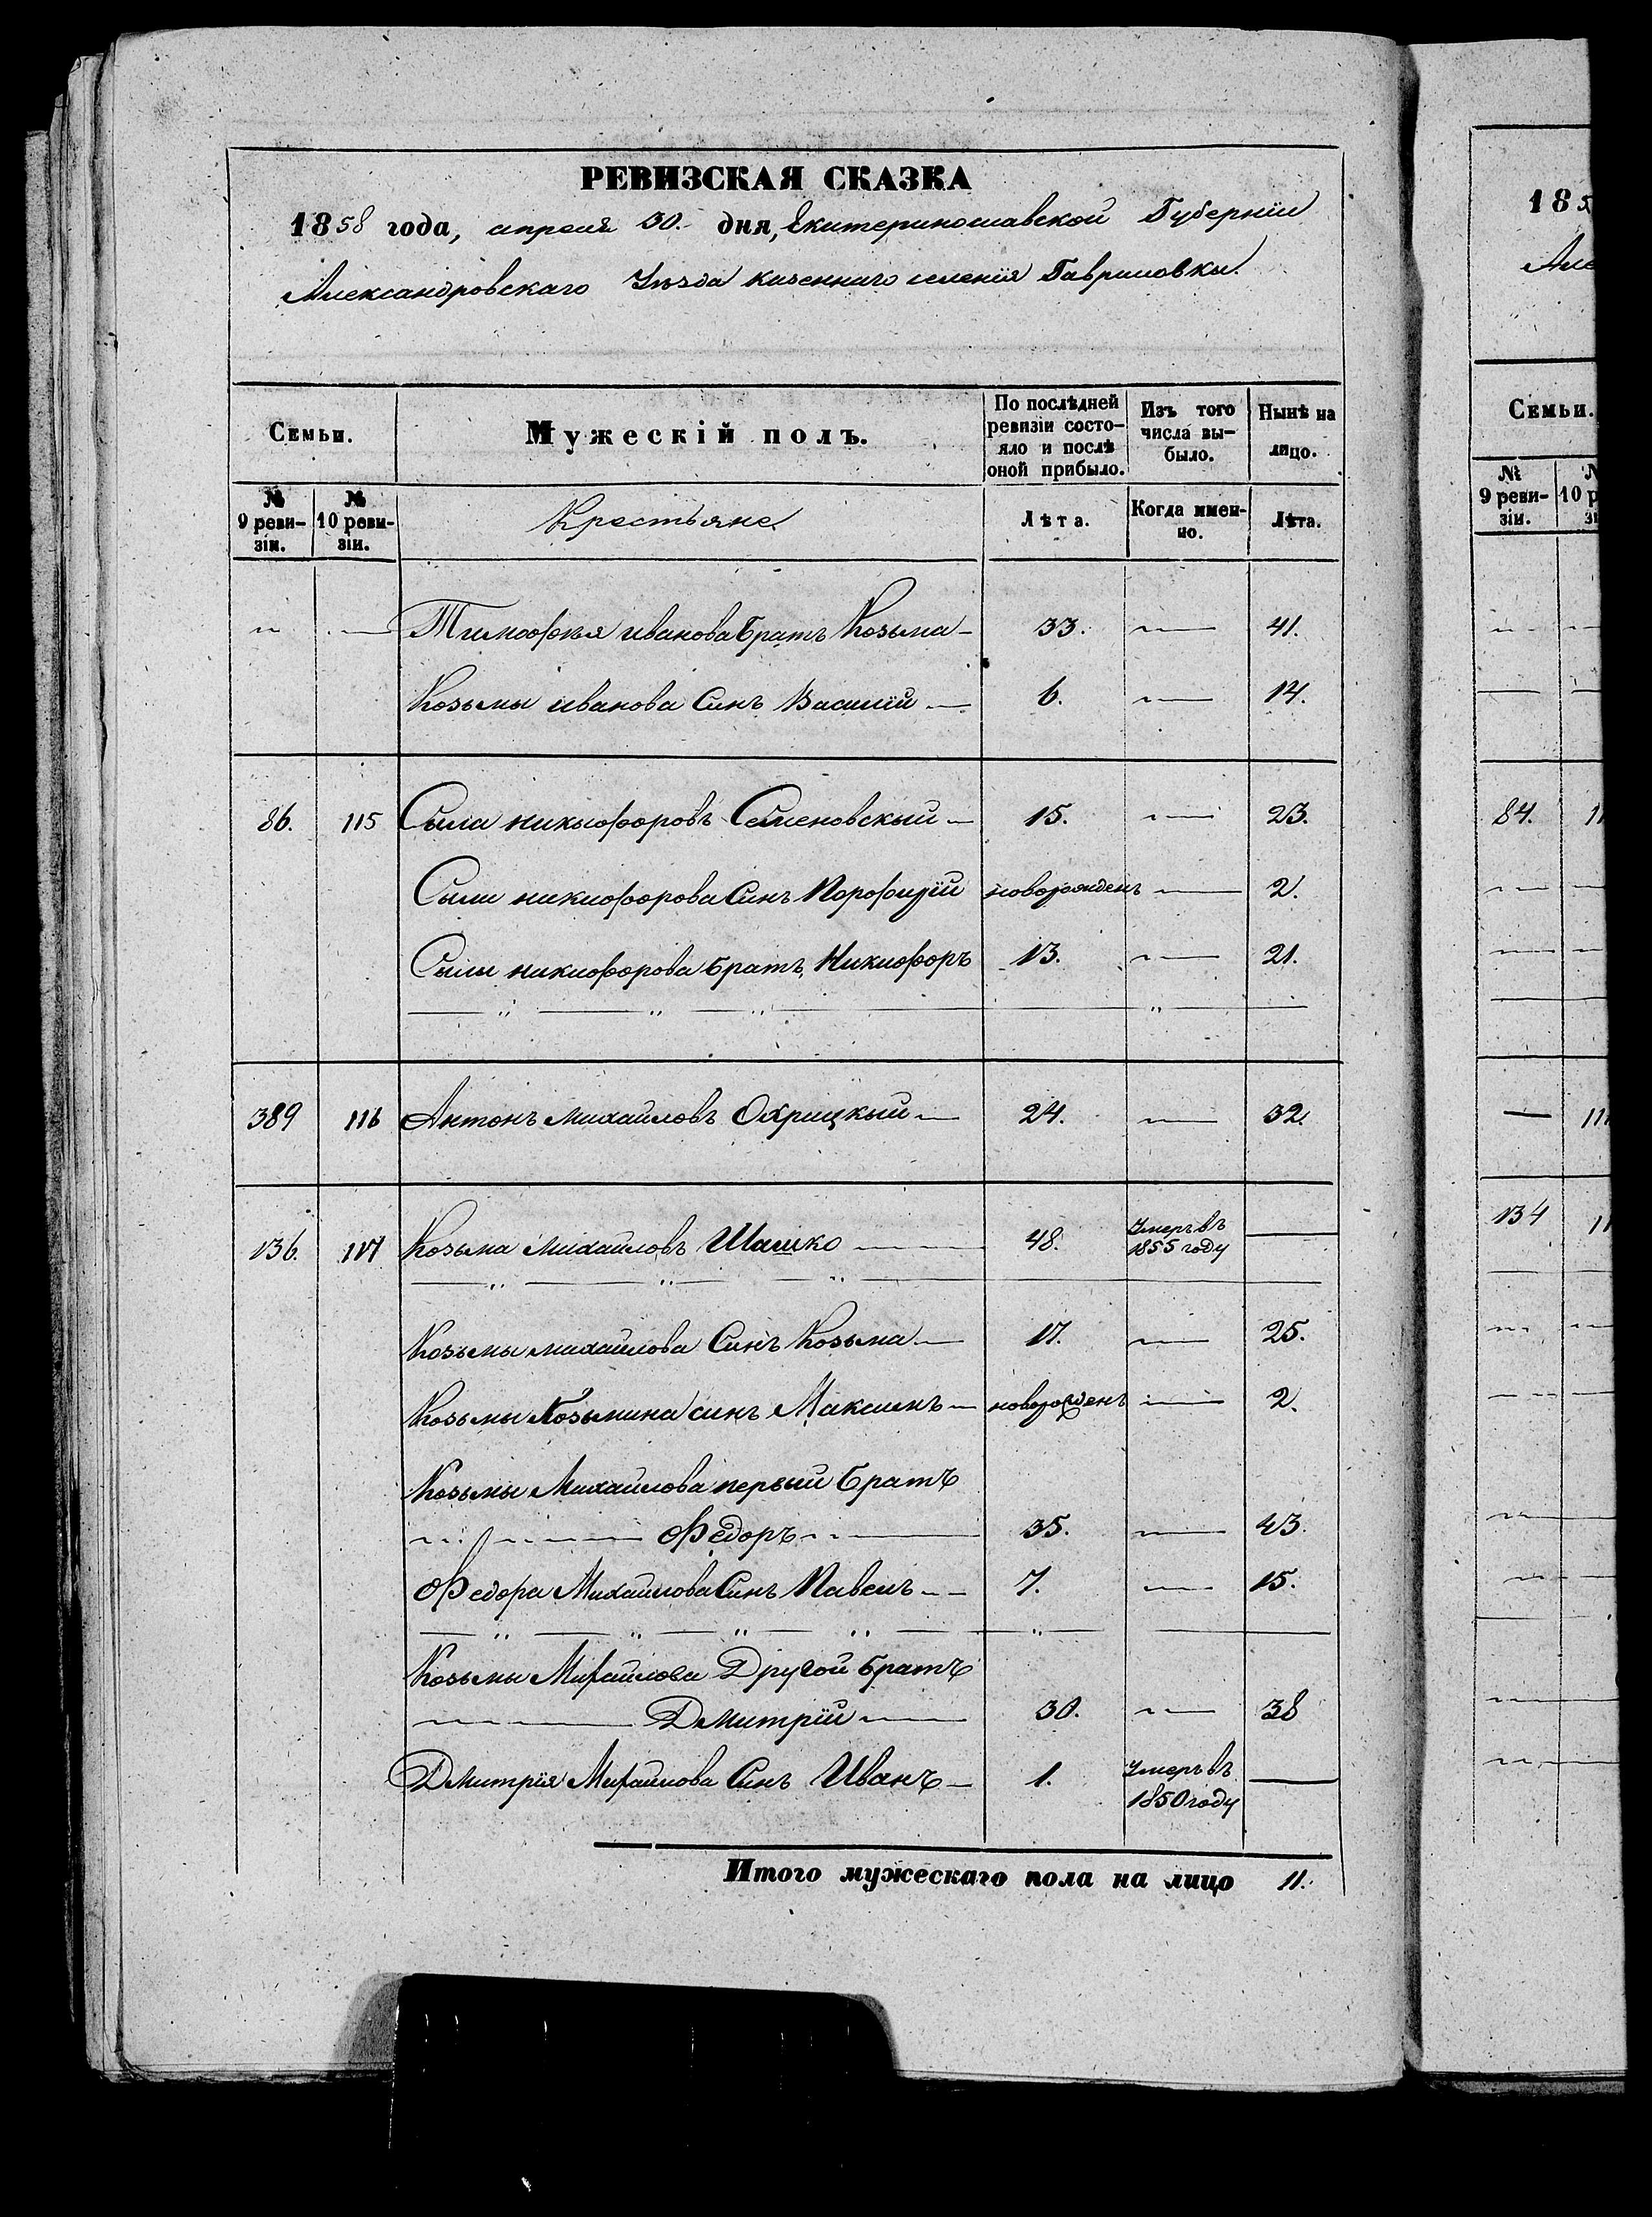 РЕВИЗСКАЯ СКАЗКА
1858 года, апреля 30. дня, Екатеринославской Губерніи
Александровскаго Уѣзда казеннаго селенія Гавриловки.
Семьи.
Мужескій полъ.
По послѣдней ревизіи состояло и послѣ оной прибыло.
Изъ того числа выбыло.
Нынѣ на лицо.
№ 9 ревизіи.
№ 10 ревизіи.
Крестьяне
Лѣта.
Когда именно.
Лѣта.
Тимофѣя иванова братъ Козьма 33. 41.
Козьмы иванова Синъ Василій 6. 14.
86. 115 Сыла никыфоровъ Семеновскый 15. 23.
Сылы никифорова Синъ Порофирій новорожденъ 2.
Сылы никифорова братъ Никифоръ 13. 21.
389 116 Антонъ михайловъ Охрицкый 24. 32.
136. 117 Козьма михайловъ Шашко 48. Умеръ въ 1855 году
Козьмы михайлова Синъ Козьма 17. 25.
Козьмы Козьмина синъ Максимъ новорожденъ 2.
Козьмы Михайлова первый братъ
Федоръ 35. 43.
Федора Михайлова Синъ Павелъ 7. 15.
Козьмы Михайлова Другой братъ
Дмитрій 30. 38
Дмитрія Михайлова Синъ Иванъ 1. Умеръ въ 1850 году
Итого мужескаго пола на лицо 11.
185
Але
Семьи.
№ 9 ревизіи.
84.
134